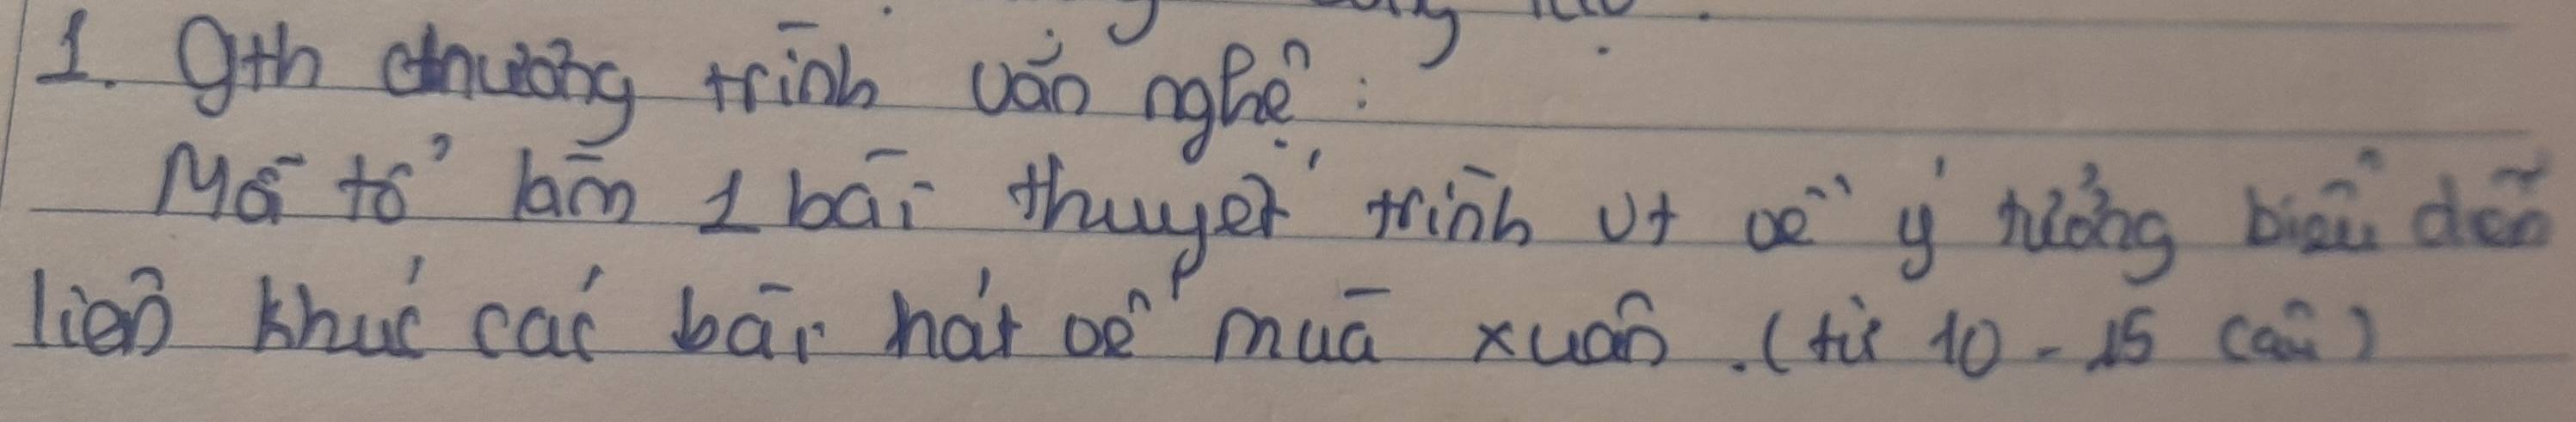 1. gth chương trình văn nghệ :
Mỗi tổ làm 1 bài thuyết trình vt về ý tưởng biểu diễn
liên khúc các bài hát về mùa xuân. (từ 10 - 15 câu)